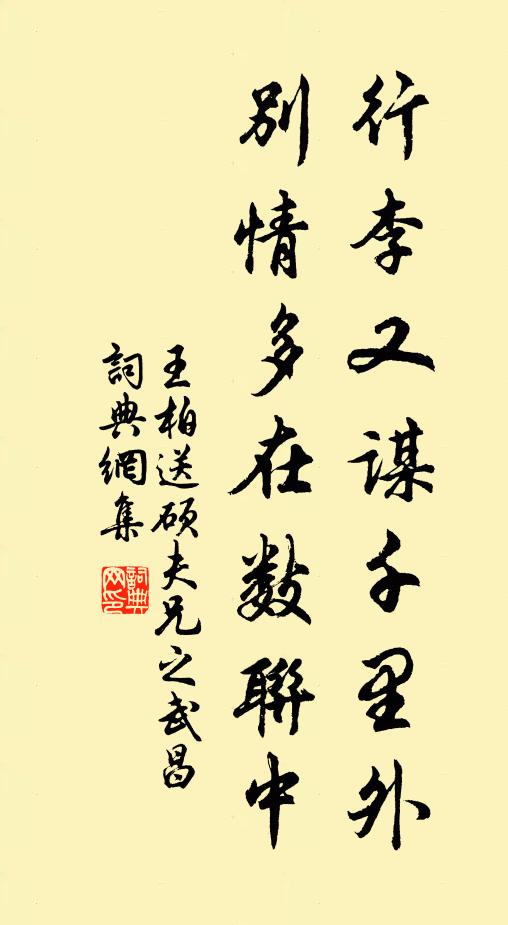 行李又謀千里外
別情多在數聯中
王柏送碩夫兄之武昌
詞典網集
詞典
网印